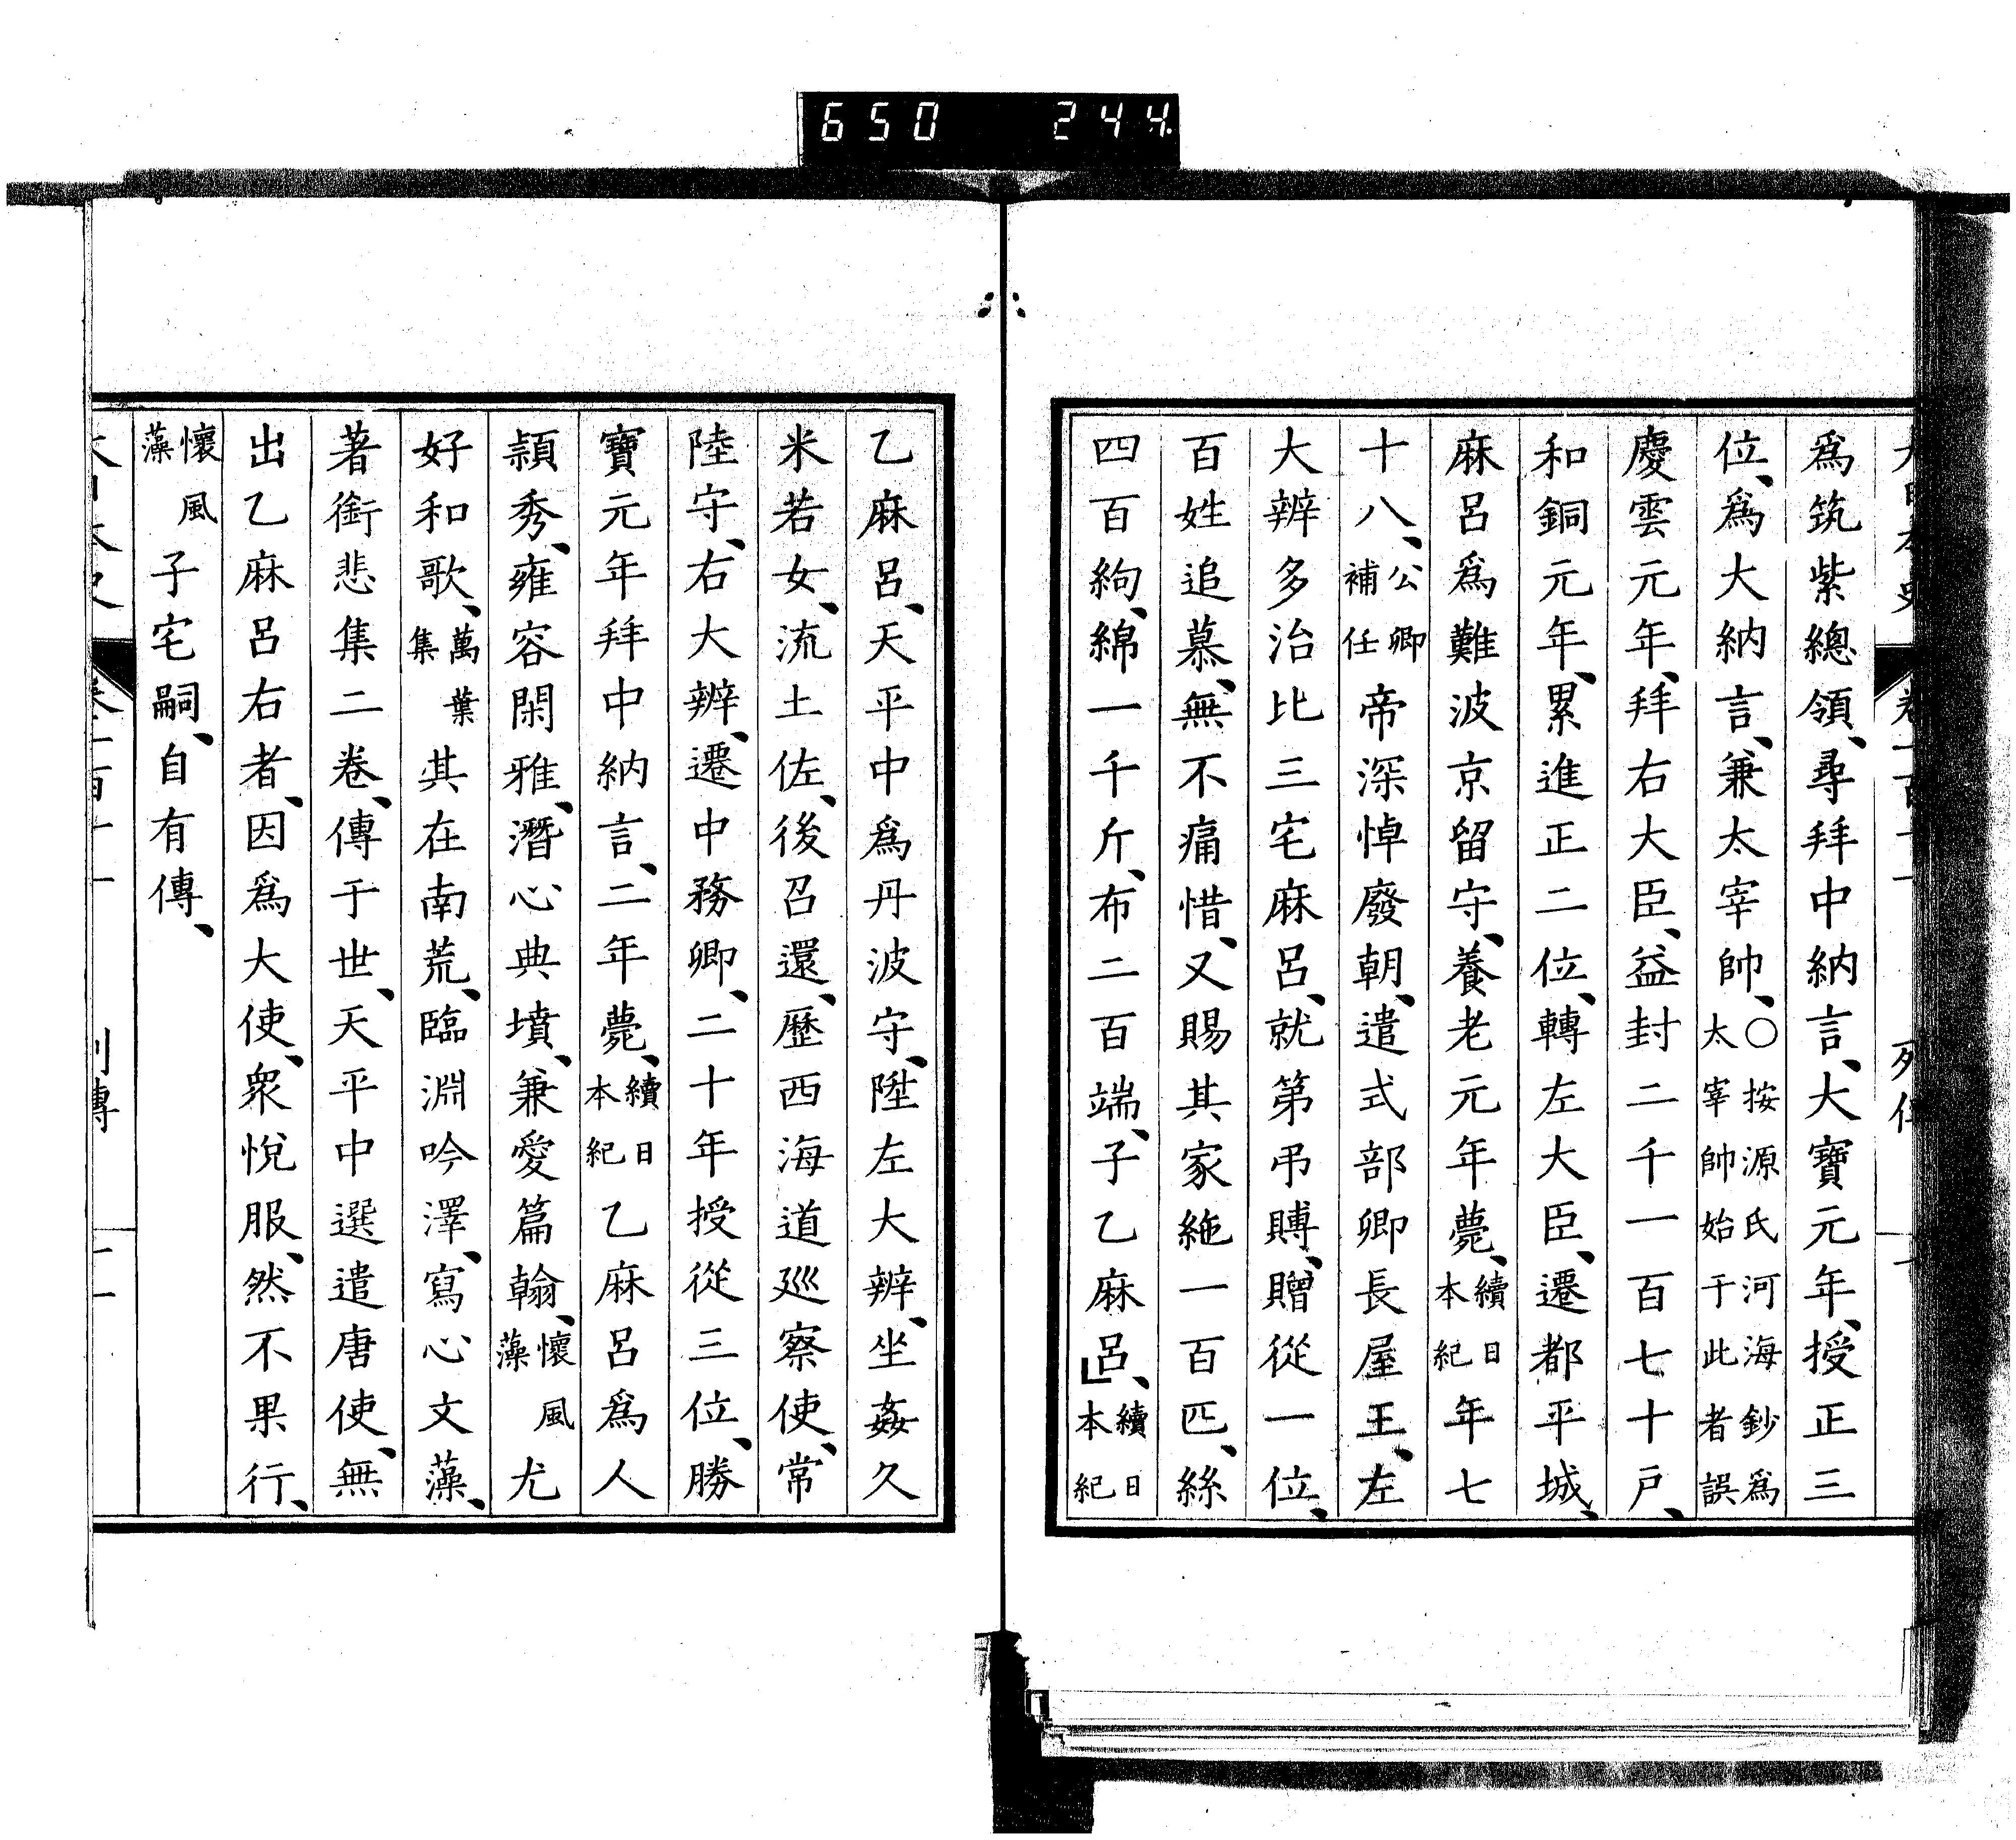 650 244
爲筑紫總領、尋拜中納言、大寶元年、授正三
位、爲大納言、兼太宰帥、○按源氏河海鈔爲太宰帥始于此者誤
慶雲元年、拜右大臣、益封二千一百七十戸、
和銅元年、累進正二位、轉左大臣、遷都平城、
麻呂爲難波京留守、養老元年薨、續日本紀年七
十八、公卿補任帝深悼廢朝、遣式部卿長屋王、左
大辨多治比三宅麻呂、就第弔賻、贈從一位、
百姓追慕、無不痛惜、又賜其家絁一百匹、絲
四百絇、綿一千斤、布二百端、子乙麻呂、」續日本紀
乙麻呂、天平中爲丹波守、陞左大辨、坐姦久
米若女、流土佐、後召還、歷西海道巡察使、常
陸守、右大辨、遷中務卿、二十年授從三位、勝
寶元年拜中納言、二年薨、續日本紀乙麻呂爲人
頴秀、雍容閑雅、潛心典墳、兼愛篇翰、懷風藻尤
好和歌、萬葉集其在南荒、臨淵吟澤、寫心文藻、
著銜悲集二卷、傳于世、天平中選遣唐使、無
出乙麻呂右者、因爲大使、衆悅服、然不果行、
懷風藻子宅嗣、自有傳、